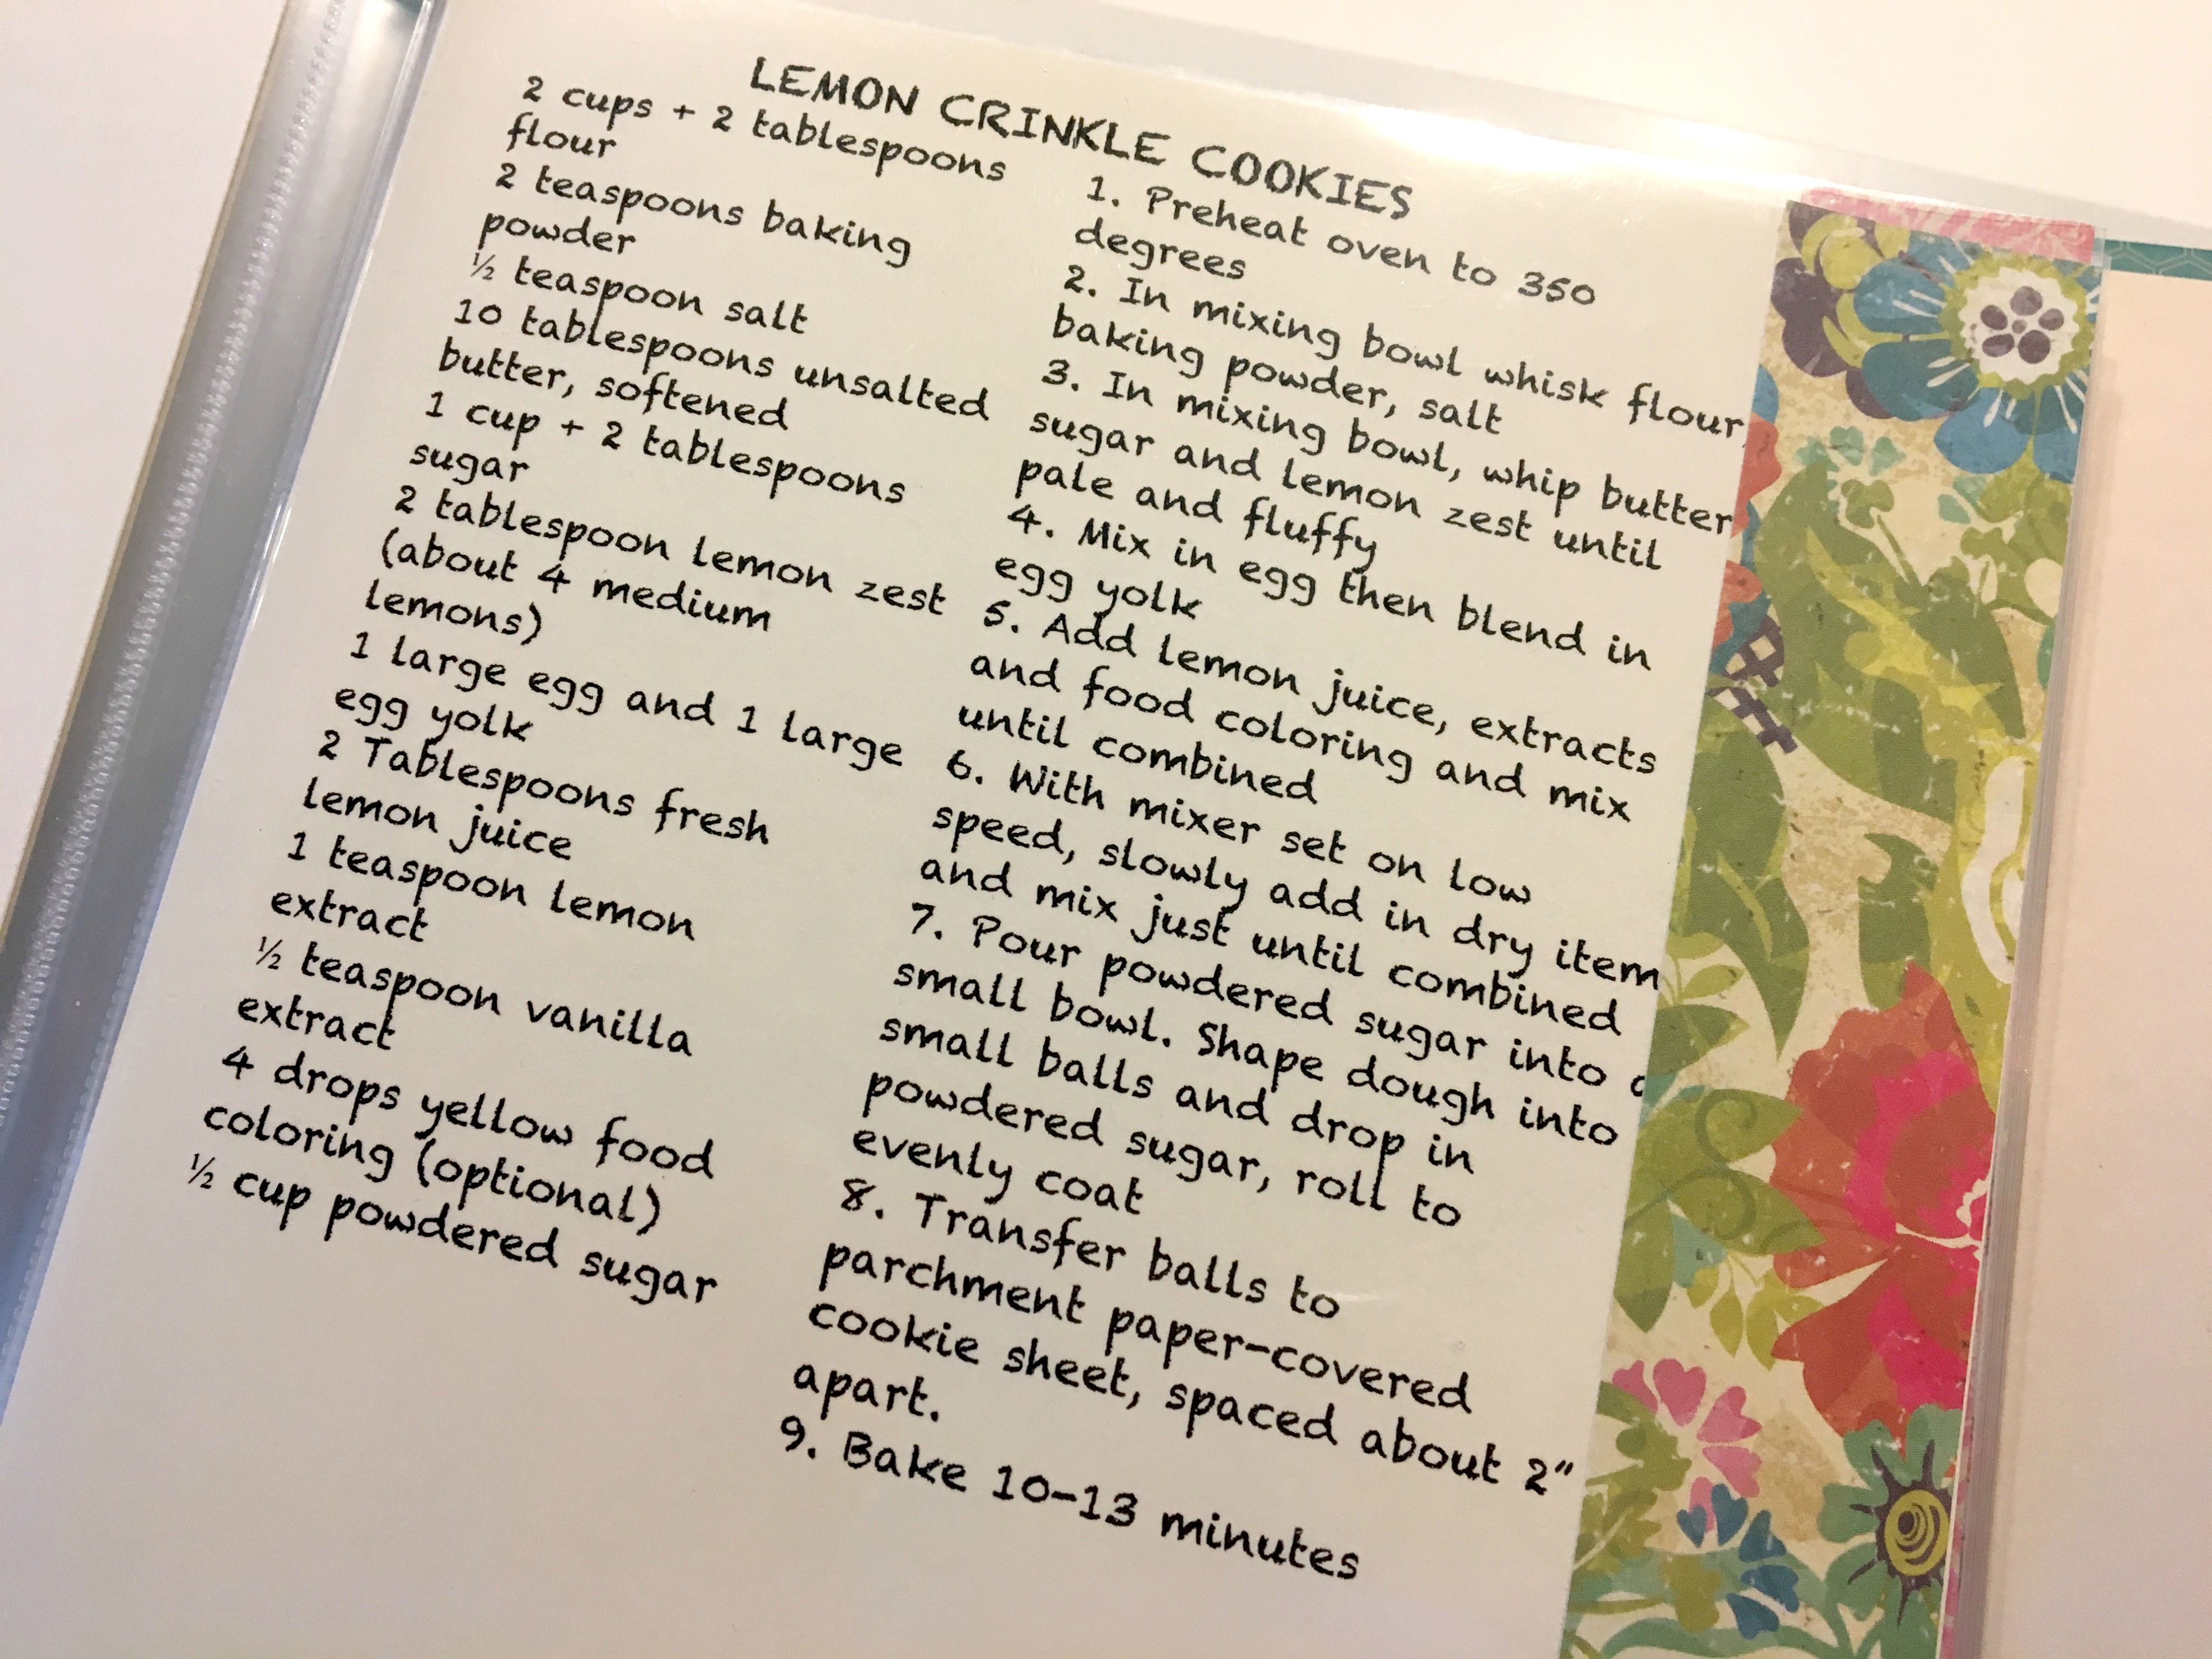 LEMON CRINKLE COOKIES
2 cups + 2 tablespoons
flour
2 teaspoons baking
powder
½ teaspoon salt
10 tablespoons unsalted
butter, softened
1 cup + 2 tablespoons
sugar
2 tablespoon lemon zest
(about 4 medium
lemons)
1 large egg and 1 large
egg yolk
2 Tablespoons fresh
lemon juice
1 teaspoon lemon
extract
½ teaspoon vanilla
extract
4 drops yellow food
coloring (optional)
½ cup powdered sugar
1. Preheat oven to 350
degrees
2. In mixing bowl whisk flour,
baking powder, salt
3. In mixing bowl, whip butter
sugar and lemon zest until
pale and fluffy
4. Mix in egg then blend in
egg yolk
5. Add lemon juice, extracts
and food coloring and mix
until combined
6. With mixer set on low
speed, slowly add in dry item
and mix just until combined
7. Pour powdered sugar into
small bowl. Shape dough into
small balls and drop in
powdered sugar, roll to
evenly coat
8. Transfer balls to
parchment paper-covered
cookie sheet, spaced about 2"
apart.
9. Bake 10-13 minutes